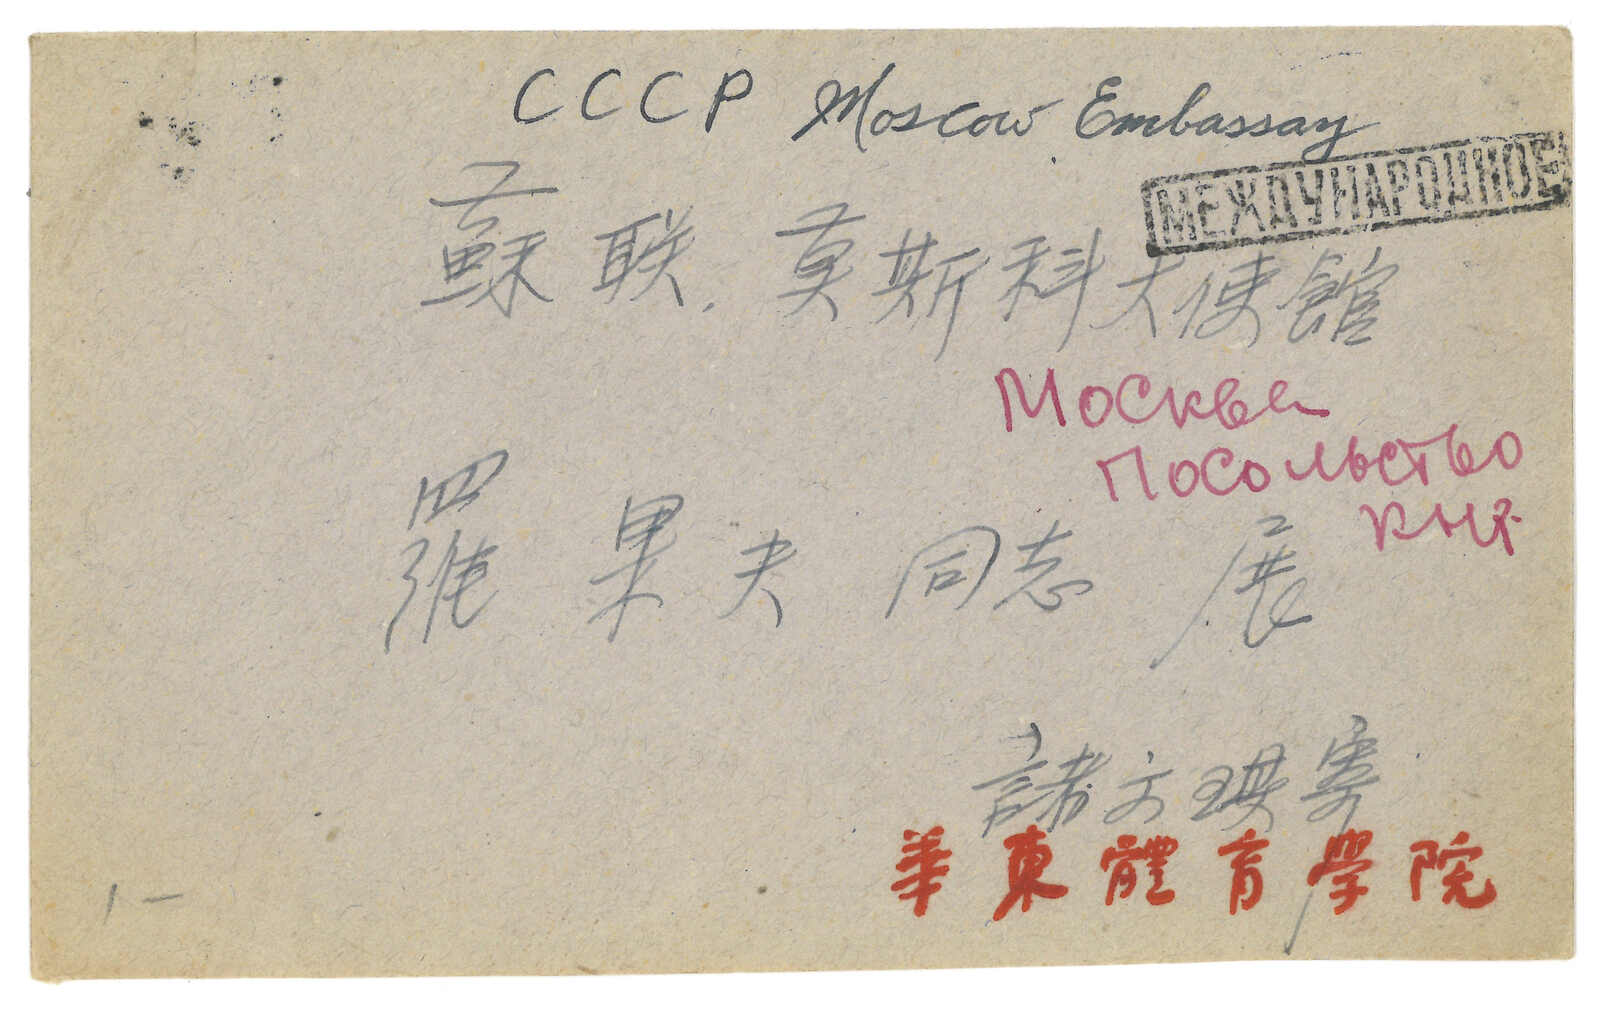 CCCP Moscow Embassay
МЕЖДУНАРОДНОЕ
蘇联.莫斯科大使館
Москва
Посольство
КНР.
羅果夫 同志 展
諸文琪寄
華東體育學院
1-